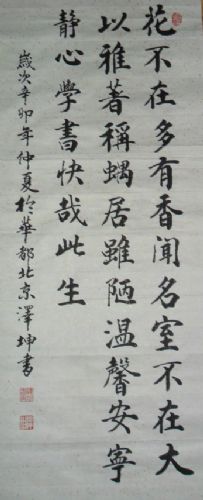 花不在多有香聞名室不在大
以雅著稱蝸居雖陋温馨安寧
静心學書快哉此生
歲次辛卯年仲夏於華都北京澤坤書